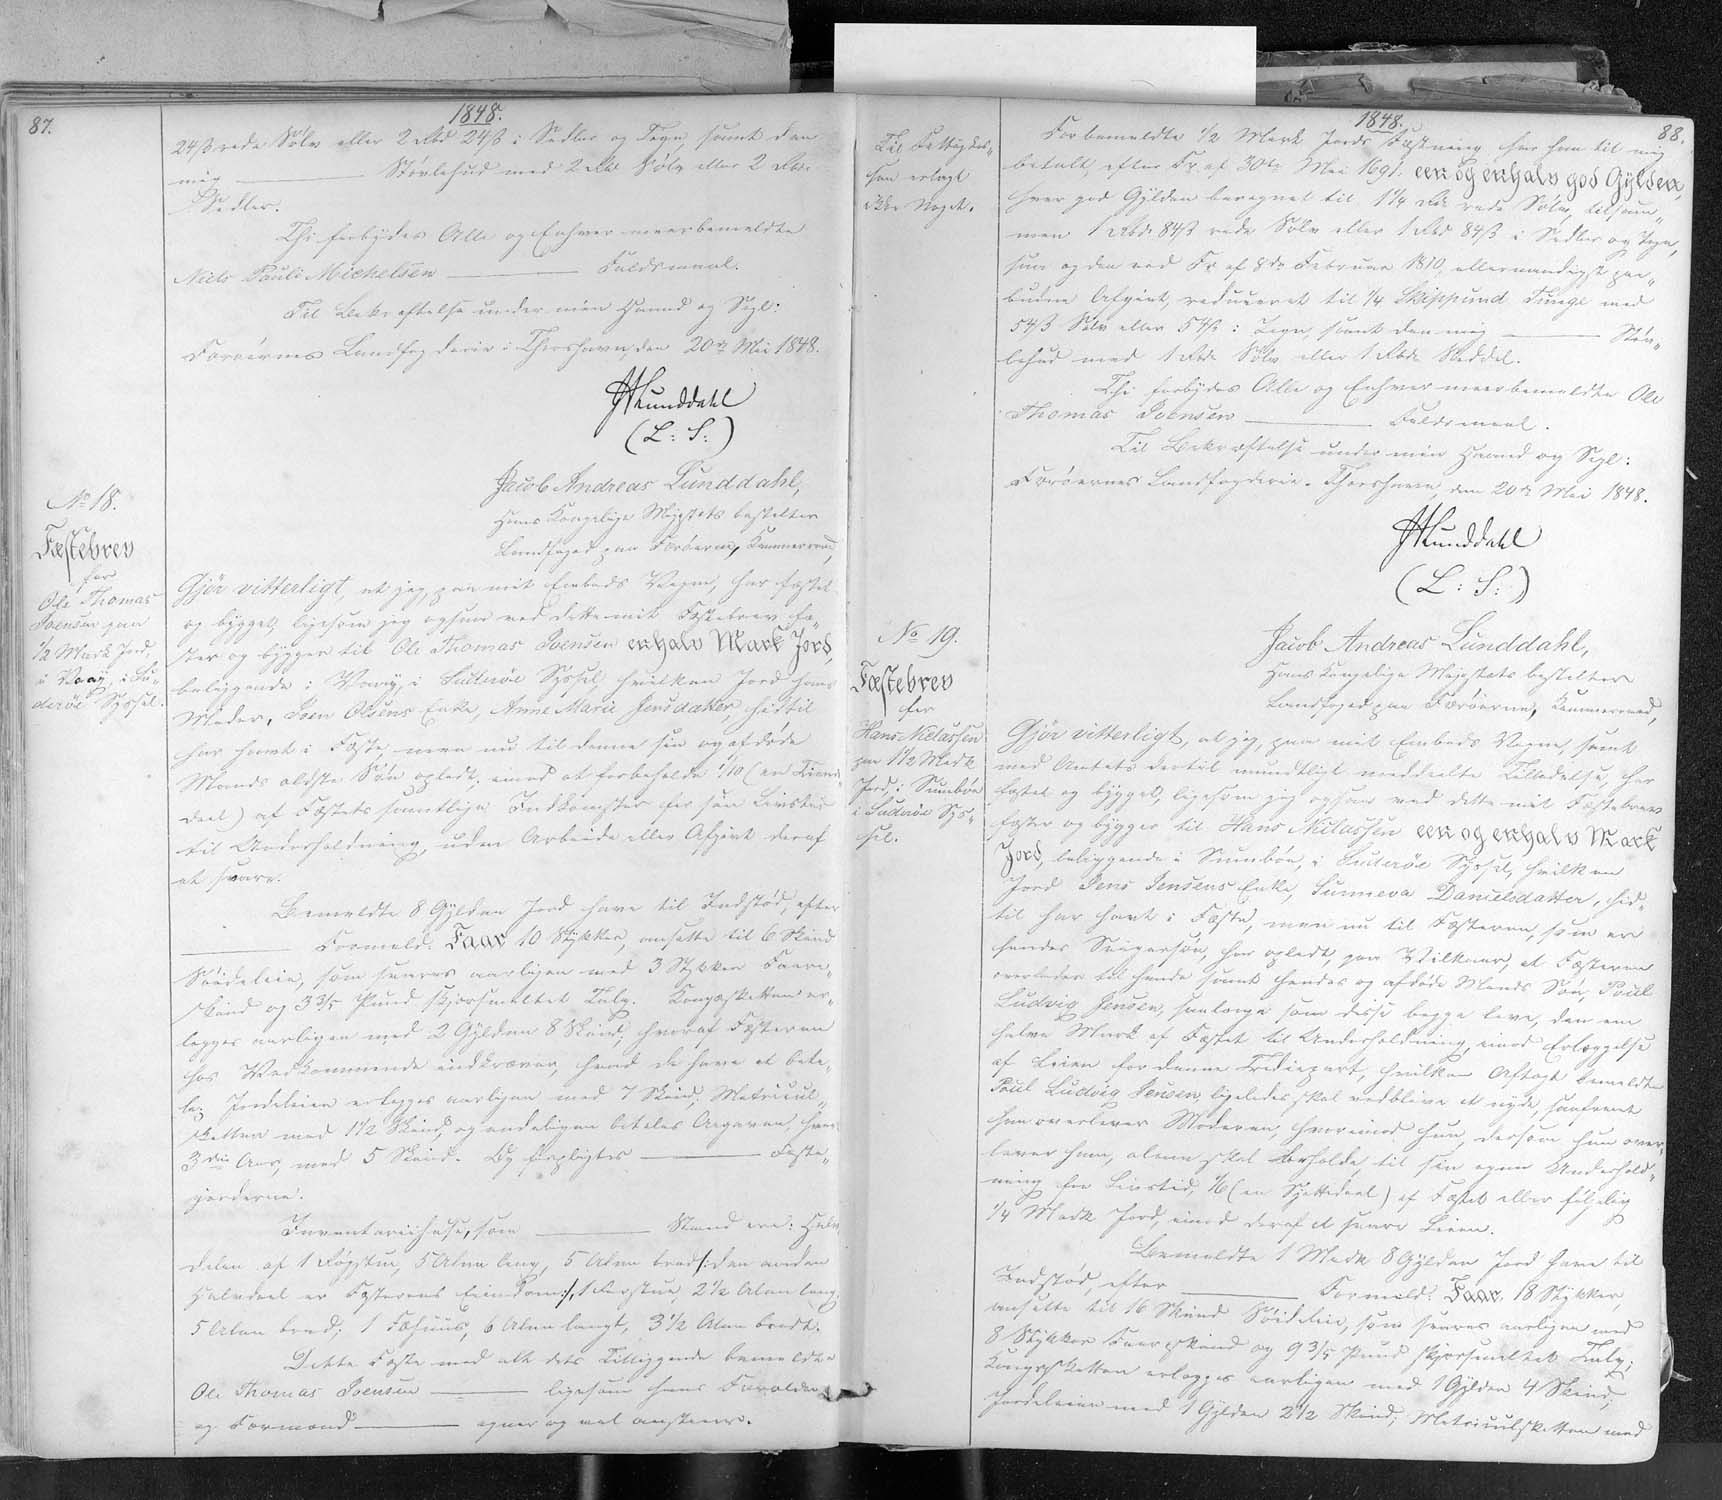 87.
1848.
24 β rede Sölv eller 2 Rbd 24 β i Sedler og Tegn, samt den
mig ——— Støvlehud med 2 Rbd Sölv eller 2 Rbd.
Sedler.
Thi forbydes Alle og Enhver meerbemeldte
Niels Pauli Michelsen ——— Faldsmaal.
Til Bekræftelse under min Haand og Segl:
Færöernes Landfogderie i Thorshavn, den 20de Mai 1848.
HLunddahl
(L: S:)
No 18.
Fæstebrev
for
Ole Thomas
Joensen paa
1/2 Mark Jord,
i Vaaij, i Su-
deröe Syssel.
Jacob Andreas Lunddahl,
Hans Kongelige Majestæts bestalter
Landfoged paa Færöerne, Kammerraad,
Gjör vitterligt, at jeg, paa mit Embeds Vegne, har fæstet
og bygget, ligesom jeg ogsaa ved dette mit Fæstebrev fæ-
ster og bygger til Ole Thomas Joensen enhalv Mark Jord,
beliggende i Vaaij, i Suderöe Syssel, hvilken Jord hans
Moder, Joen Olsens Enke, Anne Marie Jensdatter, hidtil
har havt i Fæste, men nu til denne sin og afdöde
Mands ældste Sön opladt, imod at forbeholde 1/10 (en Tiende-
deel) af Fæstets samtlige Indkomster for sin Livstid
til Underholdning, uden Arbeide eller Afgivt deraf
at svare.
Bemeldte 8 Gylden Jord have til Indstöd, efter
——— Formeld. Faar 10 Stykker, ansatte til 6 Skind
Söideleie, som svares aarligen med 3 Stykker Faare-
skind og 3 3/5 Pund skjærsmeltet Talg. Kongsskatten er-
lægges aarligen med 2 Gylden 8 Skind, hvoraf Fæsteren
hos Vedkommende indkræver, hvad de have at beta-
le; Jordeleien erlægges aarligen med 7 Skind; Matricul-
skatten med 1 1/2 Skind, og endeligen betales Aargaven, hver
3die Aar, med 5 Skind. Og forpligtes ——— Fæste-
gaarderne.
Inventariihuse, som ——— Stand ere: Halv-
delen af 1 Rögstue, 5 Alen lang, 5 Alen bred /: den anden
Halvdeel er Fæsterens Eiendom :/, 1 Forstue, 2 1/2 Alen lang,
5 Alen bred; 1 Fæhuus, 6 Alen langt, 3 1/2 Alen bredt.
Dette Fæste med alt dets Tilliggende bemeldte
Ole Thomas Joensen ——— ligesom hans Forældre
og Formænd ——— egner og vel anstaaer.
88.
1848.
Til Fattigkas-
sen erlagt
ikke Noget.
For bemeldte 1/2 Mark Jords Fæstning har han til mig
betalt, efter Fr. af 30te Mai 1691, een og enhalv god Gylden,
hver god Gylden beregnet til 1 1/4 Rd. rede Sölv, tilsam-
men 1 Rbd 84 β rede Sölv eller 1 Rbd 84 β i Sedler og Tegn,
saa og den ved Fr. af 8de Februar 1810, allernaadigst paa-
budne Afgivt, reduceret til 1/4 Skippund Tunge med
54 β Sölv eller 54 β i Tegn, samt den mig ——— Støv-
lehud med 1 Rbd. Sölv eller 1 Rbd. Seddel.
Thi forbydes Alle og Enhver meerbemeldte Ole
Thomas Joensen ——— Faldsmaal.
Til Bekræftelse under min Haand og Segl:
Færöernes Landfogderie i Thorshavn, den 20de Mai 1848.
HLunddahl
(L: S:)
No 19.
Fæstebrev
for
Hans Nielassen
paa 1 1/2 Mark
Jord, i Sumböe
i Suderöe Sys-
sel.
Jacob Andreas Lunddahl,
Hans Kongelige Majestæts bestalter
Landfoged paa Færöerne, Kammerraad,
Gjör vitterligt, at jeg, paa mit Embeds Vegne, samt
med Amtets dertil mundtligt meddeelte Tilladelse, har
fæstet og bygget, ligesom jeg ogsaa ved dette mit Fæstebrev
fæster og bygger til Hans Nielassen een og enhalv Mark
Jord, beliggende i Sumböe, i Suderöe Syssel, hvilken
Jord Jens Jensens Enke, Sunneva Danielsdatter, hid-
til har havt i Fæste, men nu til Fæsteren, som er
hendes Svigersön, har opladt, paa Vilkaar, at Fæsteren
overlader til hende samt hendes og afdöde Mands Sön, Poul
Ludvig Jensen, saalænge som disse begge leve, den ene
halve Mark af Fæstet til Underholdning, imod Erlæggelse
af Leien for denne Trediepart, hvilken Aftægt bemeldte
Poul Ludvig Jensen, ligeledes skal vedblive at nyde, saafremt
han overlever Moderen, hvorimod hun, dersom hun over-
lever ham, alene skal beholde, til sin egen Underhold-
ning for Livstid, 1/6 (en Sjettedeel) af Fæstet eller fölgelig
1/4 Mark Jord, imod deraf at svare Leien.
Bemeldte 1 Mark 8 Gylden Jord have til
Indstöd, efter ——— Formeld. Faar 18 Stykker,
ansatte til 16 Skind Söideleie, som svares aarligen med
8 Stykker Faareskind og 9 3/5 Pund skjærsmeltet Talg;
Kongsskatten erlægges aarligen med 1 Gylden 4 Skind;
Jordeleien med 1 Gylden 2 1/2 Skind; Matriculskatten med